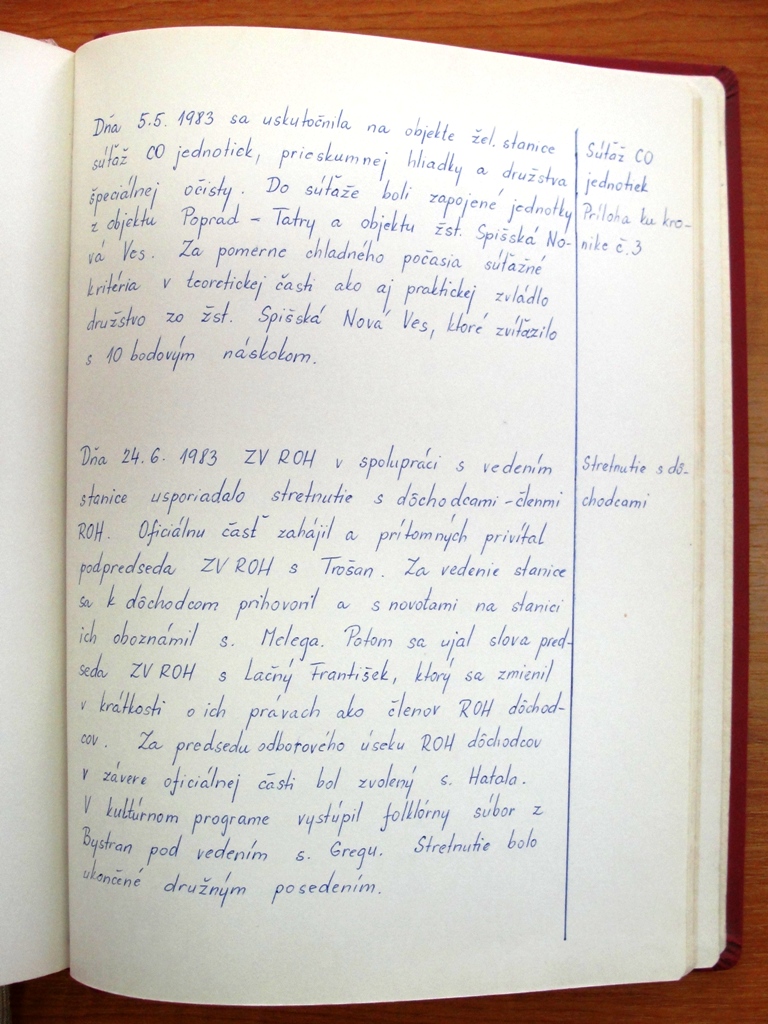 Dňa 5.5. 1983 sa uskutočnila na objekte žel. stanice
súťaž CO jednotiek, prieskumnej hliadky a družstva
špeciálnej očisty. Do súťaže boli zapojené jednotky
z objektu Poprad - Tatry a objektu žst. Spišská No-
vá Ves. Za pomerne chladného počasia súťažné
kritéria v teoretickej časti ako aj praktickej zvládlo
družstvo zo žst. Spišská Nová Ves, ktoré zvíťazilo
s 10 bodovým náskokom.
Súťaž CO
jednotiek
Príloha ku kro-
nike č.3
Dňa 24.6. 1983 ZV ROH v spolupráci s vedením
stanice usporiadalo stretnutie s dôchodcami - členmi
ROH. Oficiálnu časť zahájil a prítomných privítal
podpredseda ZV ROH s Trošan. Za vedenie stanice
sa k dôchodcom prihovoril a s novotami na stanici
ich oboznámil s. Melega. Potom sa ujal slova pred-
seda ZV ROH s Lačný František, ktorý sa zmienil
v krátkosti o ich právach ako členov ROH dôchod-
cov. Za predsedu odborového úseku ROH dôchodcov
v závere oficiálnej časti bol zvolený s. Hatala.
V kultúrnom programe vystúpil folklórny súbor z
Bystran pod vedením s. Gregu. Stretnutie bolo
ukončené družným posedením.
Stretnutie s dô-
chodcami